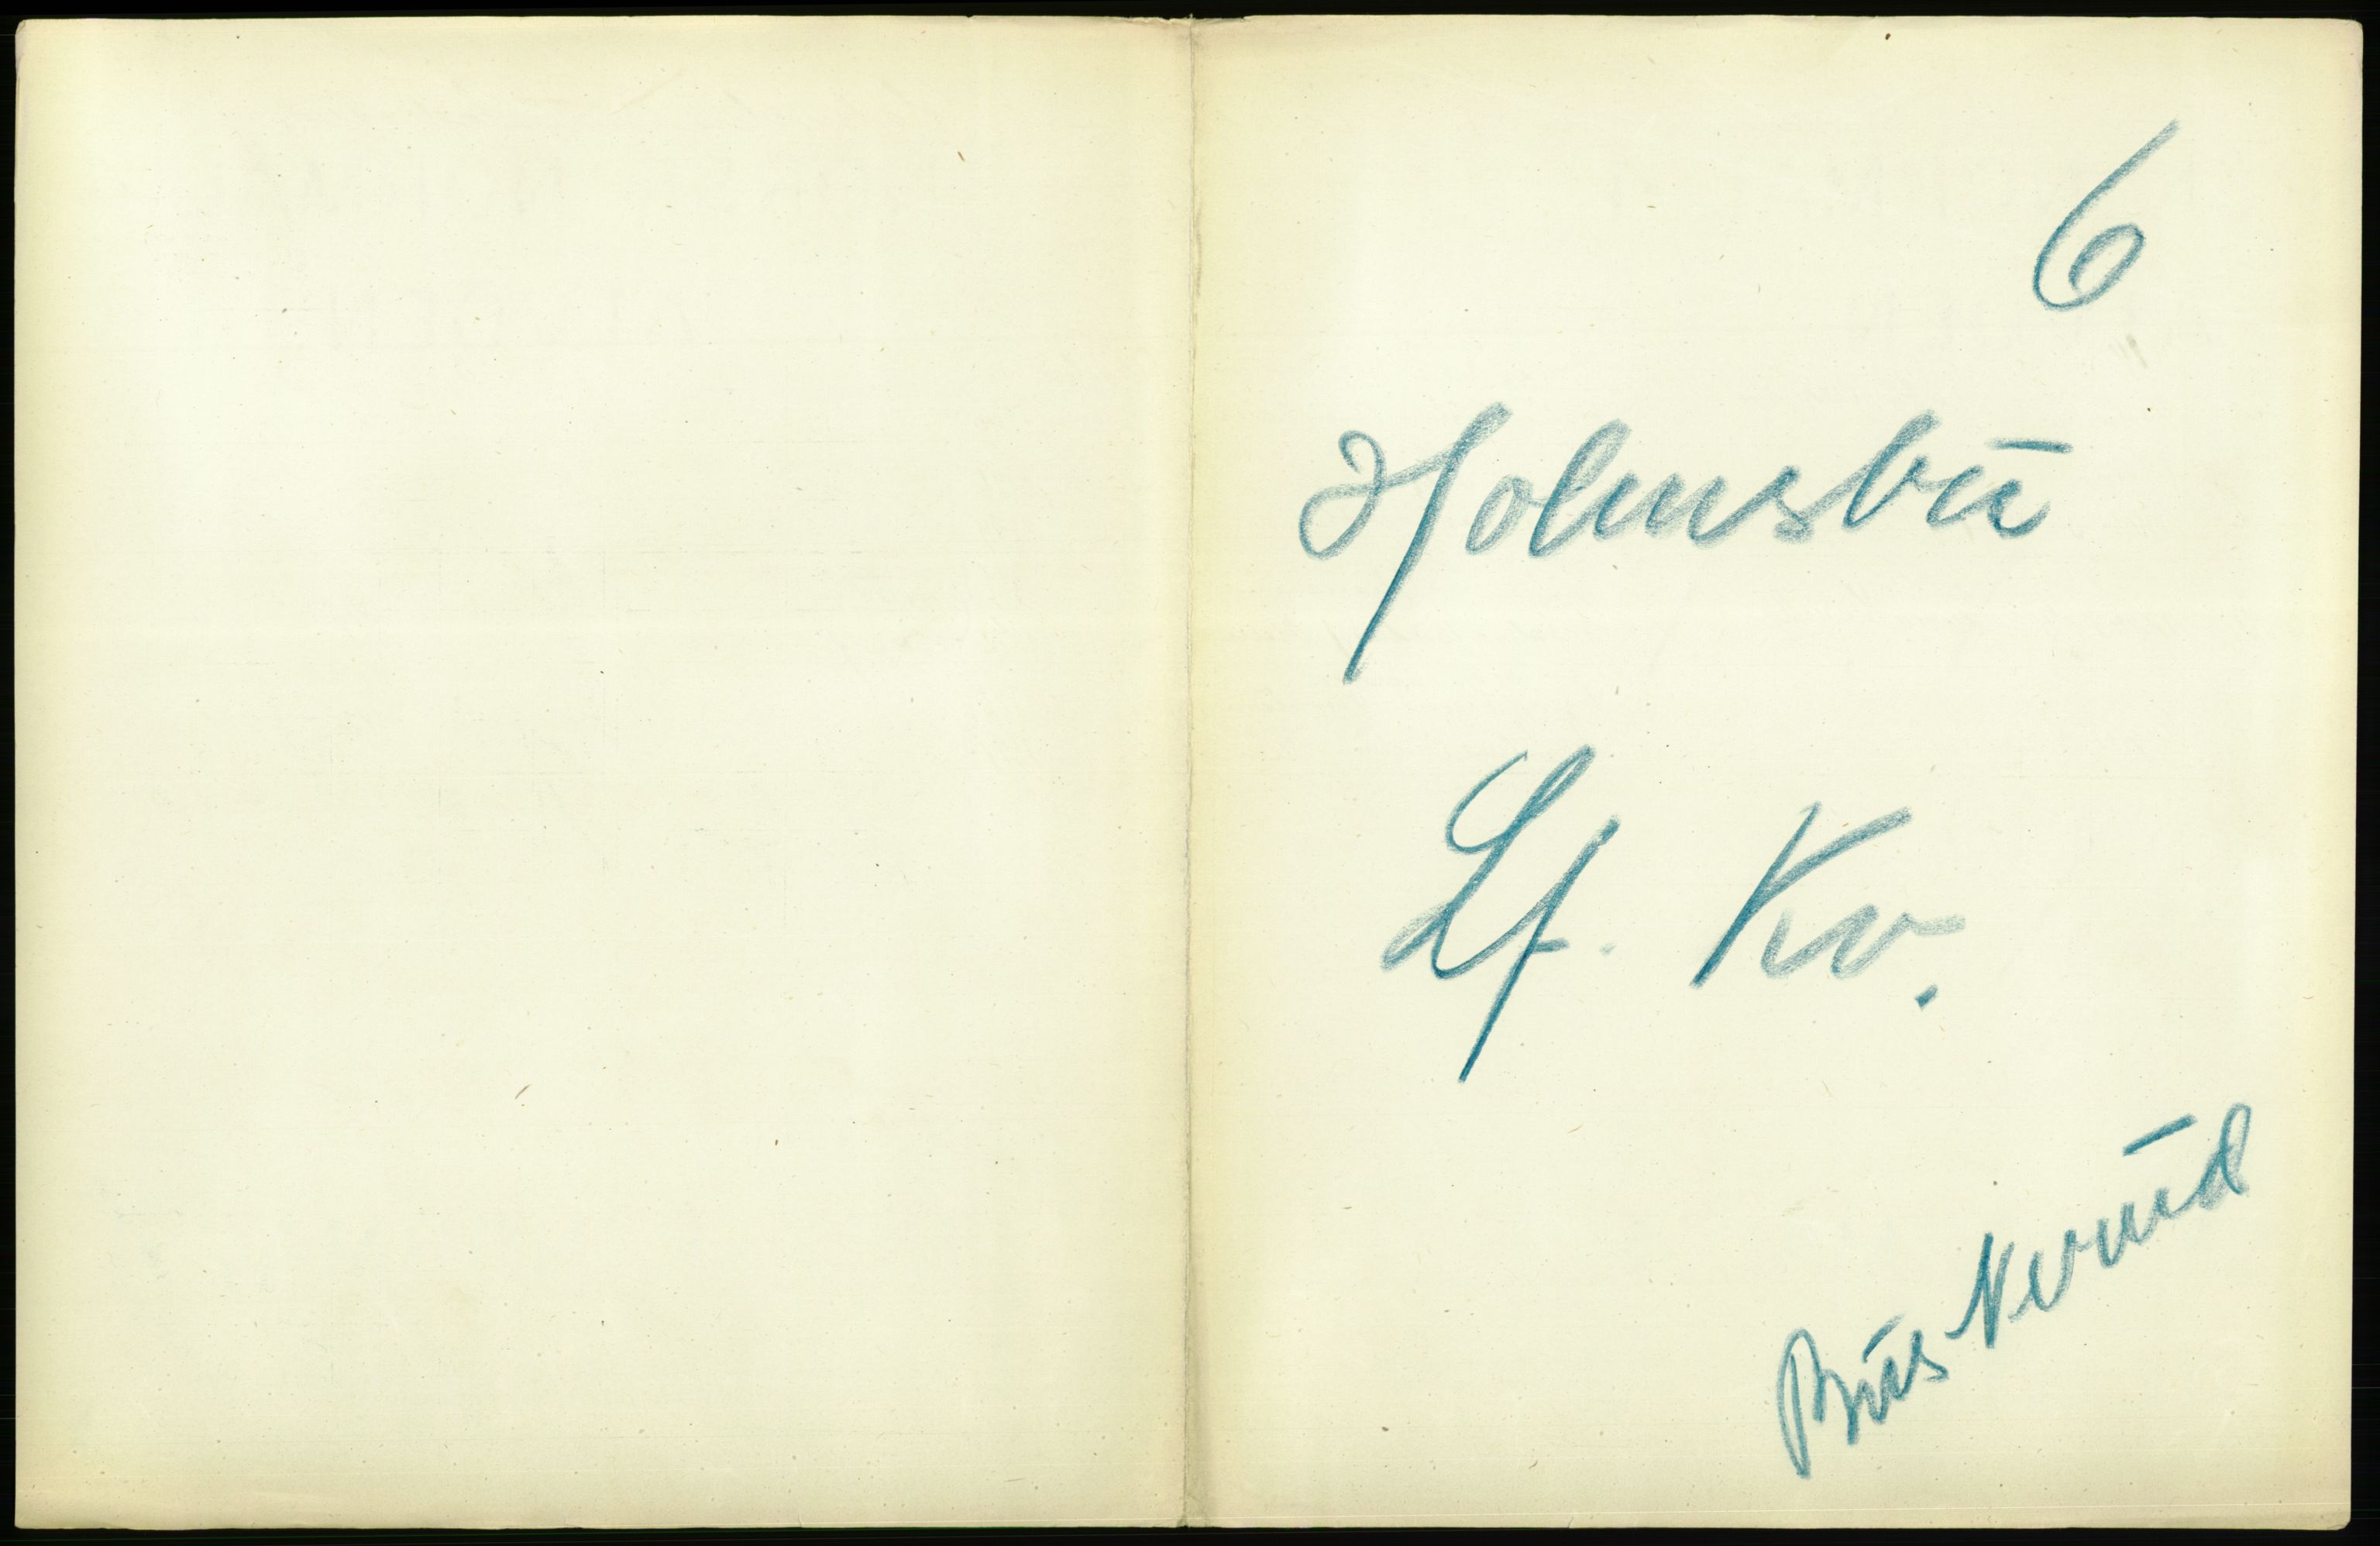 6
Holmsbū
Lf. Kv.
Būskerūd